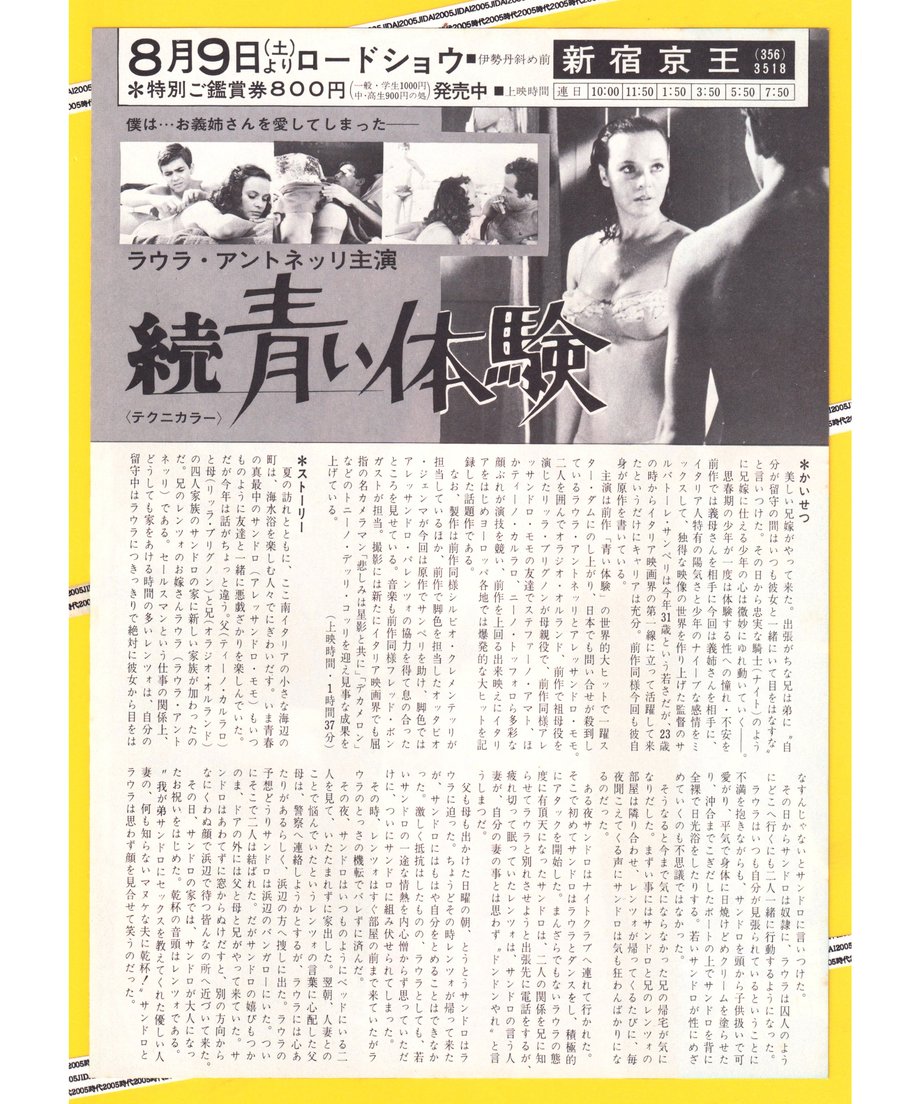 8月9日(土)よりロードショウ■伊勢丹斜め前 新宿京王 (356)3518
＊特別ご鑑賞券800円(一般・学生1000円 中・高生900円の処)発売中■上映時間 連日 10:00 11:50 1:50 3:50 5:50 7:50
僕は…お義姉さんを愛してしまった――
ラウラ・アントネッリ主演
続 青い体験
〈テクニカラー〉
＊かいせつ
美しい兄嫁がやって来た。出張がちな兄は弟に〝自
分が留守の間はいつも彼女と一緒にいて目をはなすな〟
と言いつけた。その日から忠実な騎士（ナイト）のよう
に兄嫁に仕える少年の心は微妙にゆれ動いていく――。
思春期の少年が一度は体験する性への憧れ・不安を
前作では義母さんを相手に今回は義姉さんを相手に、
イタリア人特有の陽気さと少年のナイーブな感情をミ
ックスして、独得な映像の世界を作り上げた監督のサ
ルバトーレ・サンペリは今年31歳という若さだが、23歳
の時からイタリア映画界の第一線に立って活躍して来
たというだけにキャリアは充分。前作同様今回も彼自
身が原作を書いている。
主演は前作「青い体験」の世界的大ヒットで一躍ス
ター・ダムにのし上がり、日本でも問い合せが殺到し
ているラウラ・アントネッリとアレッサンドロ・モモ。
二人を囲んでオラジオ・オルランド、前作で祖母役を
演じたリッラ・ブリグノンが母親役で、前作同様アレ
ッサンドロ・モモの友達でステファーノ・アマト、ほ
かティーノ・カルラロ、ニーノ・トッフォロら多彩な
顔ぶれが演技を競い、前作を上回る出来映えにイタリ
アをはじめヨーロッパ各地では爆発的な大ヒットを記
録した話題作である。
なお、製作は前作同様シルビオ・クレメンテッリが
担当しているほか、前作で脚色を担当したオッタビオ
・ジェンマが今回は原作でサンペリを助け、脚色では
アレッサンドロ・パレンツォの協力を得て息の合った
ところを見せている。音楽も前作同様フレッド・ボン
ガストが担当。撮影には新たにイタリア映画界でも屈
指の名カメラマン「悲しみは星影と共に」「デカメロン」
などのトニーノ・デッリ・コッリを迎え見事な成果を
上げている。
（上映時間・1時間37分）
＊ストーリー
夏の訪れとともに、ここ南イタリアの小さな海辺の
町は、海水浴を楽しむ人々でにぎわいだす。いま青春
の真最中のサンドロ（アレッサンドロ・モモ）もいつ
ものように友達と一緒に悪戯ざかりを楽しんでいた。
だが今年は話がちょっと違う。父（ティーノ・カルラロ）
と母（リッラ・ブリグノン）と兄（オラジオ・オルランド）
の四人家族のサンドロの家に新しい家族が加わったの
だ。兄のレンツォのお嫁さんラウラ（ラウラ・アント
ネッリ）である。セールスマンという仕事の関係上、
どうしても家をあける時間の多いレンツォは、自分の
留守中はラウラにつきっきりで絶対に彼女から目をは
なすんじゃないとサンドロに言いつけた。
その日からサンドロは奴隷に、ラウラは囚人のよう
にどこへ行くにも二人一緒に行動するようになった。
ラウラはいつも自分が見張られているということに
不満を抱きながらも、サンドロを頭から子供扱いで可
愛がり、平気で身体に日焼けどめクリームを塗らせた
り、沖合までこぎだしたボートの上でサンドロを背に
全裸で日光浴をしたりする。若いサンドロが性にめざ
めていくのも不思議ではなかった。
そうなると今まで気にならなかった兄の帰宅が気に
なりだした。まずい事にはサンドロと兄のレンツォの
部屋は隣り合わせ、レンツォが帰ってくるたびに、毎
夜聞こえてくる声にサンドロは気も狂わんばかりにな
るのだった。
ある夜サンドロはナイトクラブへ連れて行かれた。
そこで初めてサンドロはラウラとダンスをし、積極的
にアタックを開始した。まんざらでもないラウラの態
度に有頂天になったサンドロは、二人の関係を兄に知
らせてラウラと別れさせようと出張先に電話をするが、
疲れ切って眠っていたレンツォは、サンドロの言う人
妻が、自分の妻の事とは思わず〝ドンドンやれ〟と言
うしまつだ。
父も母も出かけた日曜の朝、とうとうサンドロはラ
ウラに迫った。ちょうどその時レンツォが帰って来た
が、サンドロにはもはや自分をとめることはできなか
った。激しく抵抗はしたものの、ラウラとしても、若
いサンドロの一途な情熱を内心憎からず思っていただ
けに、ついにサンドロに組み伏せられてしまった。
その時、レンツォはすぐ部屋の前まで来ていたがラ
ウラのとっさの機転でバレずに済んだ。
その夜、サンドロはいつものようにベッドにいる二
人を見て、いたたまれずに家出した。翌朝、人妻との
ことで悩んでいたというレンツォの言葉に心配した父
母は、警察へ連絡しようかとするが、ラウラには心あ
たりがあるらしく、浜辺の方へ捜しに出た。ラウラの
予想どうりサンドロは浜辺のバンガローにいた。つい
にそこで二人は結ばれた。だがサンドロの嬉びもつか
のま、ドアの外には父と母と兄がやって来ていた。サ
ンドロはあわてずに窓からぬけだすと、別の方向から
なにくわぬ顔で浜辺で待つ皆んなの所へ近づいて来た。
その日、サンドロの家では、サンドロが大人になっ
たお祝いをはじめた。乾杯の音頭はレンツォである。
〝我が弟サンドロにセックスを教えてくれた優しい人
妻の、何も知らないマヌケな夫に乾杯！〟サンドロと
ラウラは思わず顔を見合せて笑うのだった。
JIDAI2005時代2005時代2005時代